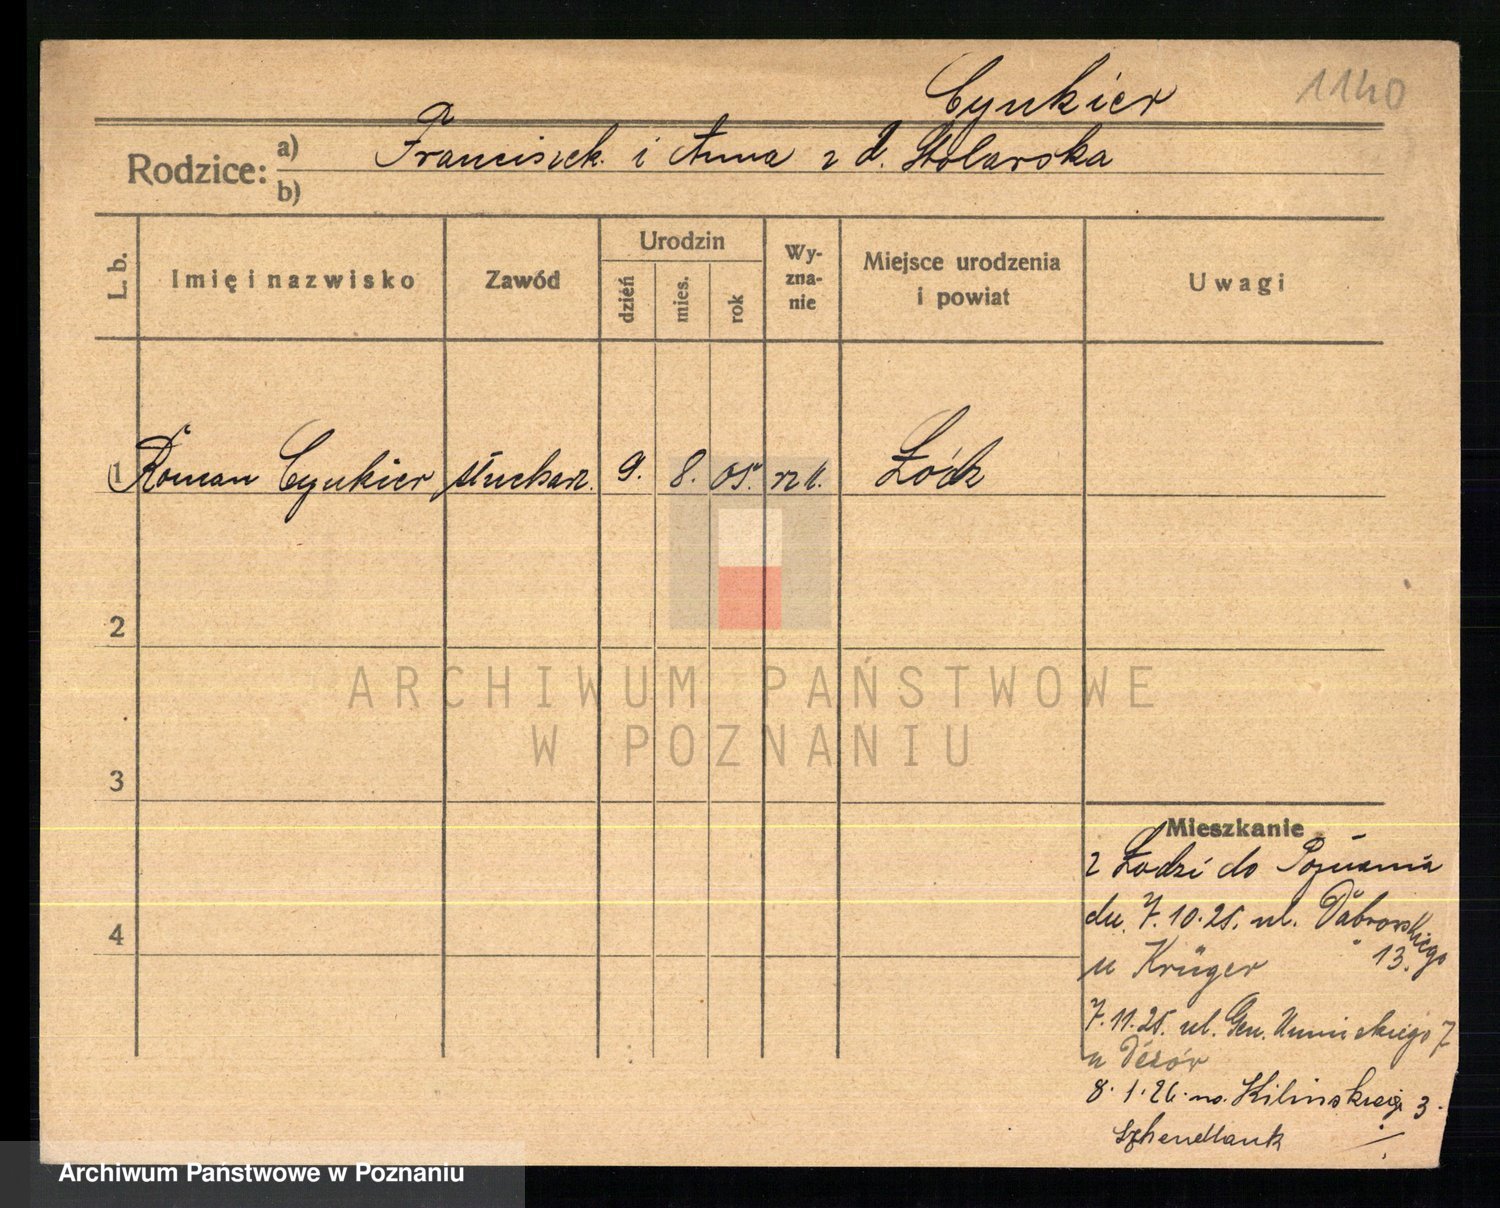 Cynkier 1140
Rodzice: a) Franciszek i Anna z d. Stolarska
b)
L. b. Imię i nazwisko Zawód Urodzin dzień mies. rok Wyznanie Miejsce urodzenia i powiat Uwagi
1 Roman Cynkier 9. 8. 05. rz k. Łódz
2
ARCHIWUM PAŃSTWOWE
W POZNANIU
3
Mieszkanie
z Łodzi do Poznania
dn. 7.10.25. ul. Dąbrowskiego
13.
u Krüger
7.11.25. ul. Gen. Umińskiego 7
4
u
8.1.26. na Kilińskiego 3.
Archiwum Państwowe w Poznaniu